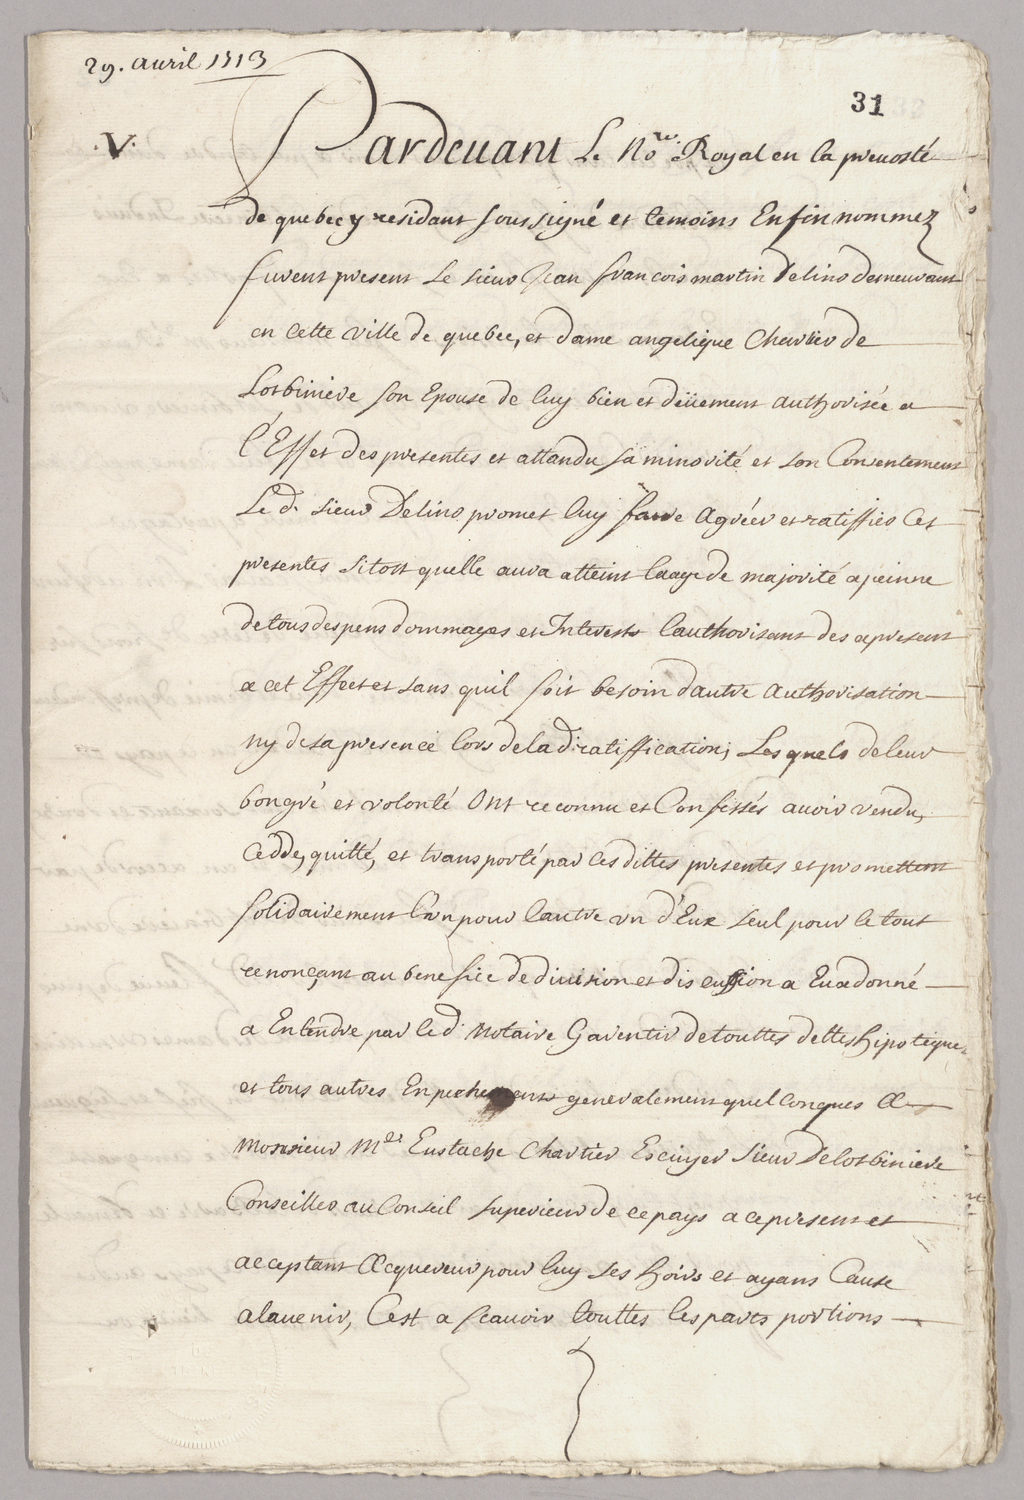 29. avril 1713
31
.V.
Pardevant Le No.re Royal en la prevosté
de quebecq y residant soussigné et temoins Enfin nommez
furent present Le sieur Jean francois martin Delino demeurant
en cette ville de quebec, et dame angelique Chartier de
Lotbiniere son Epouse de luy bien et deüement authorisée a
l'Effet des presentes et attandu sa minorité et son Consentement
Le d. sieur Delino promet luy faire Agréer et ratiffier Ces
presentes sitost quelle aura atteint laage de majorité a peinne
de tous despens dommages et Interests Lauthorisant des a present
a cet Effect et sans quil soit besoin dautre authorisation
ny de sa presence lors de la d. ratiffication; Lesquels de leur
bon gré et volonté Ont reconnu et Confessés avoir vendu,
Ceddé, quitté, et transporté par ces dittes presentes et promettent
solidairement l'un pour lautre un d'Eux seul pour le tout
renonçant au benefice de division et discussion a Eux donné
a Entendre par led. Notaire Garentir de touttes dettes hipoteques
et tous autres Enpechements generalement quelconques A
Monsieur M.re Eustache Chartier Escuyer Sieur Delotbiniere
Conseiller au Conseil superieur de ce pays a ce present et
acceptant Acquereur pour luy ses hoirs et ayans Cause
alavenir, C'est a scavoir touttes les parts portions